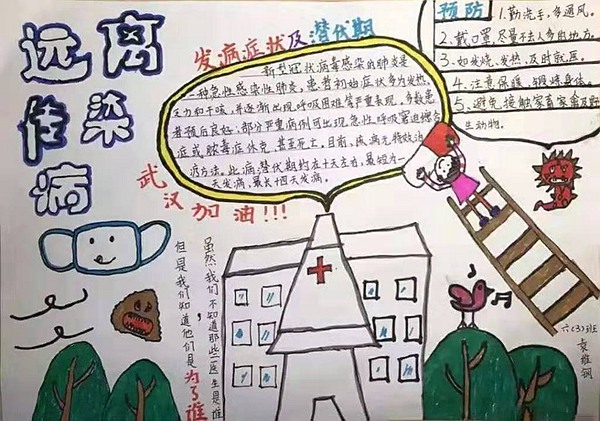 远离
传染
病
发病症状及潜伏期
新型冠状病毒感染的肺炎是
一种急性感染性肺炎，患者初始症状多为发热、
乏力和干咳，并逐渐出现呼吸困难等严重表现。多数患
者预后良好，部分严重病例可出现急性呼吸窘迫综合
征或脓毒症休克，甚至死亡。目前，疾病无特效治
疗方法。此病潜伏期约在十天左右，最短为一
天发病，最长十四天发病。
预防
1.勤洗手，多通风。
2.戴口罩，尽量不去人多的地方。
3.如发烧，发热，及时就医。
4.注意保暖，锻炼身体。
5.避免接触家畜家禽及野
生动物。
武汉加油!!!
虽然我们不知道那些医生是谁
，
但是我们知道他们是为了谁
六(3)班